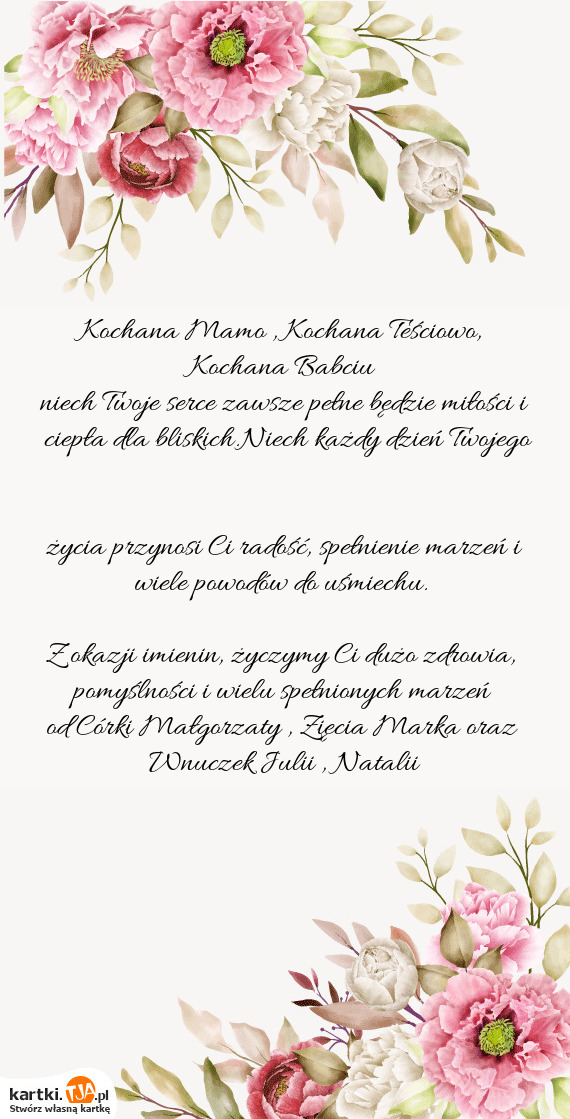 Kochana Mamo , Kochana Teściowo,
Kochana Babciu
niech Twoje serce zawsze pełne będzie miłości i
ciepła dla bliskich.Niech każdy dzień Twojego
życia przynosi Ci radość, spełnienie marzeń i
wiele powodów do uśmiechu.
Z okazji imienin, życzymy Ci dużo zdrowia,
pomyślności i wielu spełnionych marzeń
od Córki Małgorzaty , Zięcia Marka oraz
Wnuczek Julii , Natalii
kartki.TJA.pl
Stwórz własną kartkę